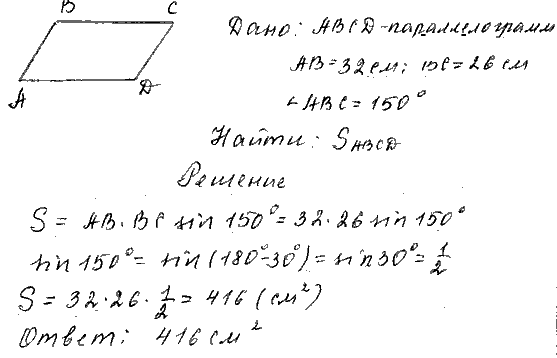 B C
A D
Дано: ABCD - параллелограмм
AB = 32 см; BC = 26 см
∠ABC = 150°
Найти: S ABCD
Решение
S = AB · BC sin 150° = 32 · 26 sin 150°
sin 150° = sin (180° - 30°) = sin 30° = 1/2
S = 32 · 26 · 1/2 = 416 (см²)
Ответ: 416 см²